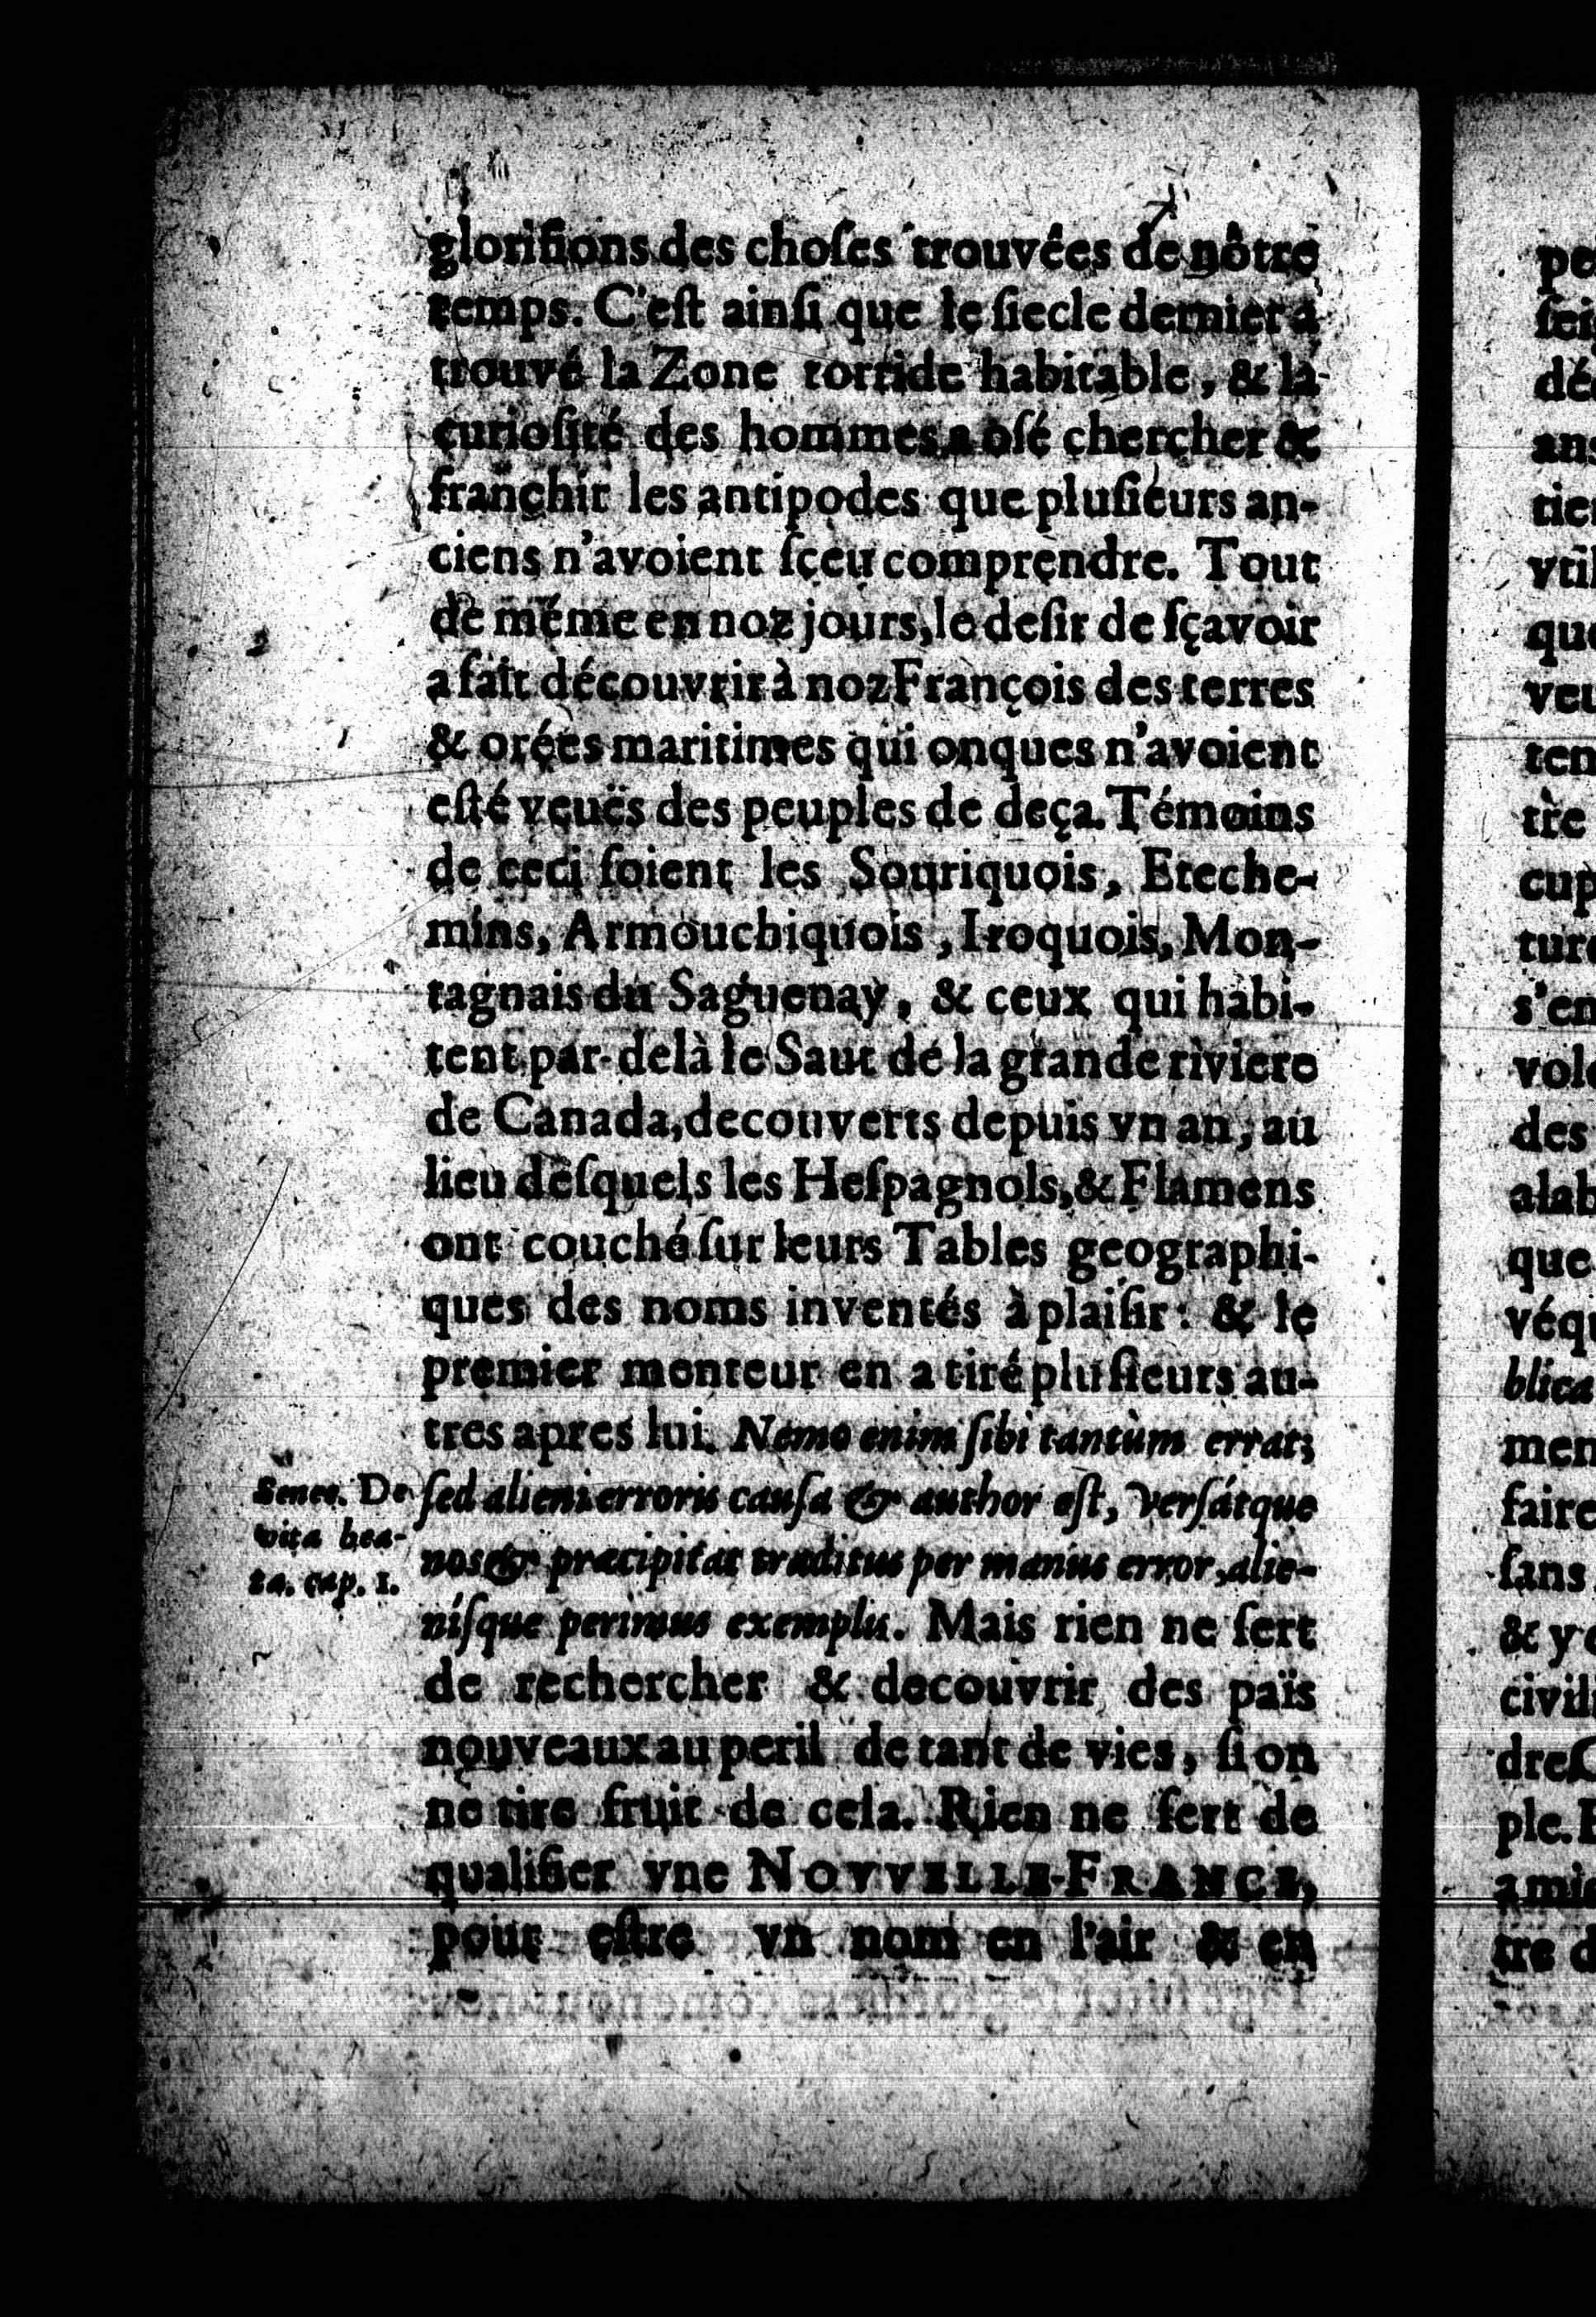 glorifions des choſes trouvées de nôtre
temps. C'eſt ainſi que le ſiecle dernier a
trouvé la Zone torride habitable, & la
curioſité des hommes a oſé chercher &
franchir les antipodes que pluſieurs an-
ciens n'avoient ſçeu comprendre. Tout
de méme en noz jours, le deſir de ſçavoir
a fait découvrir à noz François des terres
& orées maritimes qui onques n'avoient
eſté veuës des peuples de deça. Témoins
de ceci ſoient les Souriquois, Eteche-
mins, Armouchiquois, Iroquois, Mon-
tagnais du Saguenay, & ceux qui habi-
tent par-delà le Saut de la grande riviere
de Canada, decouverts depuis vn an, au
lieu deſquels les Heſpagnols, & Flamens
ont couché ſur leurs Tables geographi-
ques des noms inventés à plaiſir: & le
premier menteur en a tiré pluſieurs au-
tres apres lui. Nemo enim ſibi tantùm errat;
ſed alieni erroris cauſa & author eſt, verſátque
nos & præcipitat traditus per manus error, alie-
níſque perimus exemplis. Mais rien ne ſert
de rechercher & decouvrir des païs
nouveaux au peril de tant de vies, ſi on
ne tire fruit de cela. Rien ne ſert de
qualifier vne NOVVELLE-FRANCE,
pour eſtre vn nom en l'air & en
Senec. De
vita bea-
ta. cap. 1.
pe
ſei
dé
ans
tie
vtil
que
ver
tem
tre
cup
ture
s'en
vole
des
alab
que
véqu
blica
men
faire
ſans
& y
civil
dreſ
ple.
amie
tre d